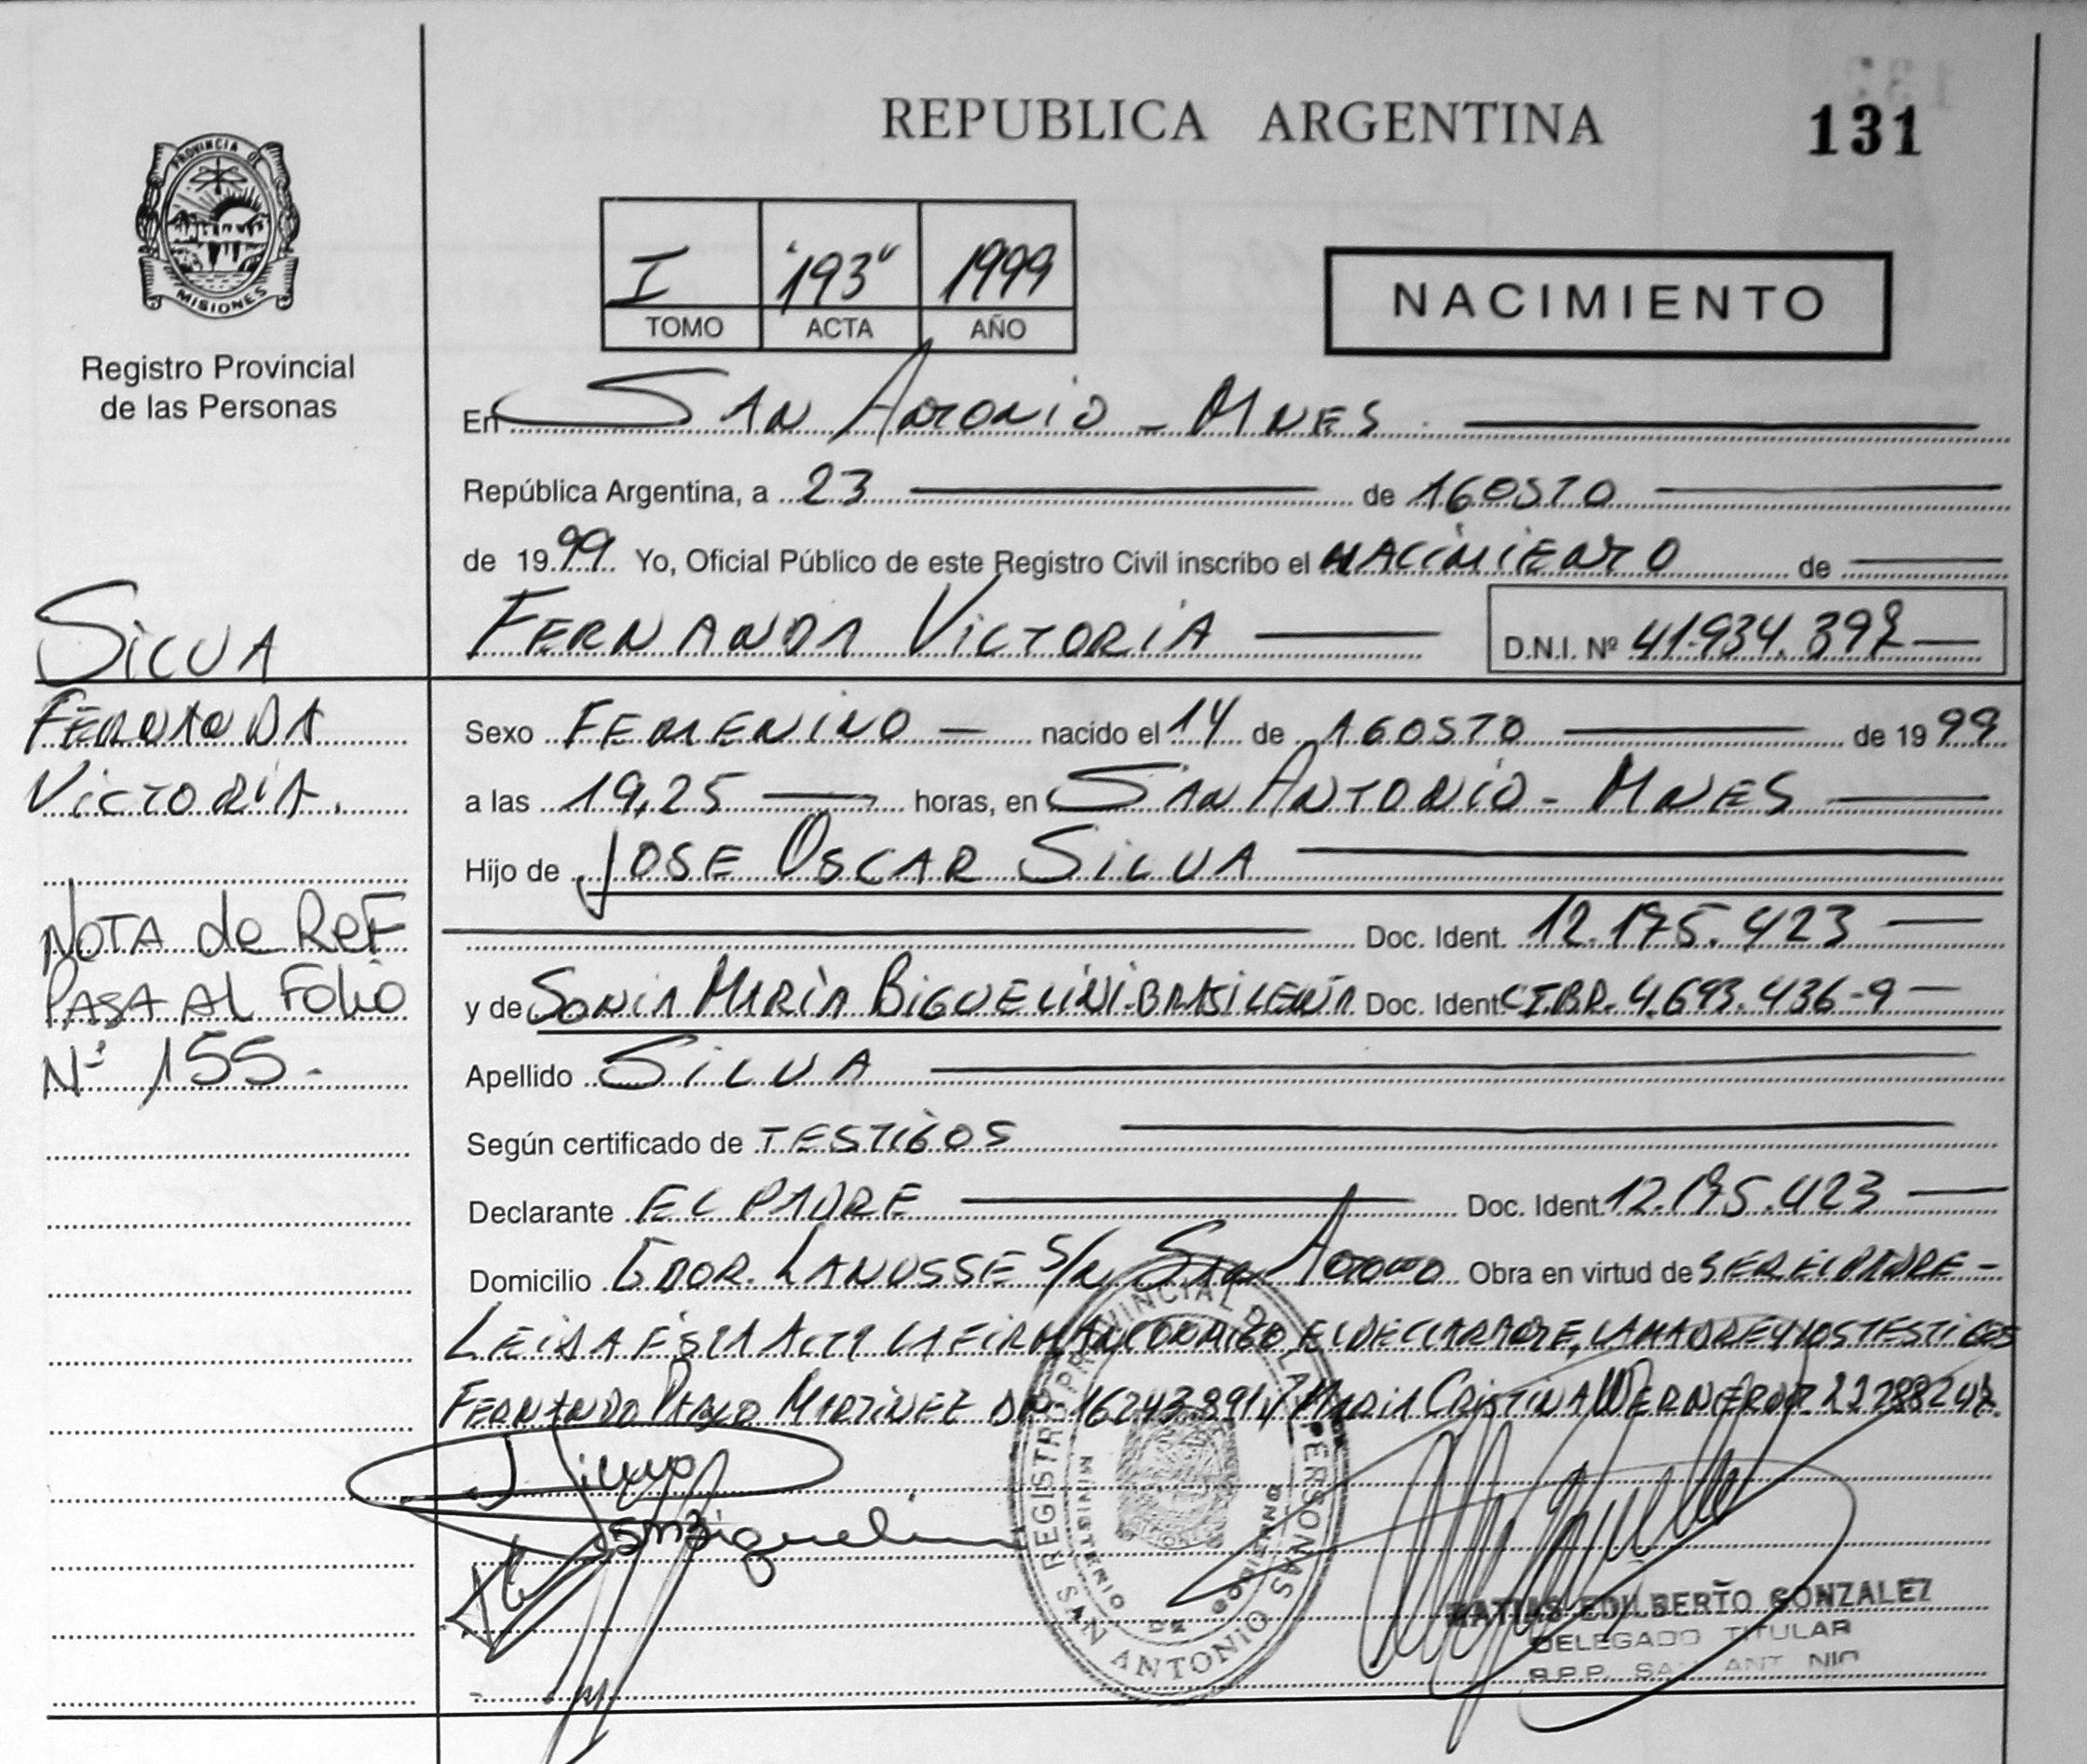 REPUBLICA ARGENTINA
131
PROVINCIA DE
MISIONES
Registro Provincial
de las Personas
I "193" 1999
TOMO ACTA AÑO
NACIMIENTO
En SAN ANTONIO - MNES
República Argentina, a 23 de AGOSTO
de 1999. Yo, Oficial Público de este Registro Civil inscribo el NACIMIENTO de
FERNANDA VICTORIA
D.N.I. Nº 41.934.397
SILVA
FERNANDA
VICTORIA.
NOTA de ReF
PASA AL Folio
Nº 155.-
Sexo FEMENINO nacido el 14 de AGOSTO de 1999
a las 19,25 horas, en SAN ANTONIO - MNES
Hijo de JOSE OSCAR SILVA
Doc. Ident. 12.175.423
y de SONIA MARIA BIGUELINI-BRASILEÑA Doc. Ident. C.I.BR. 4.693.436-9
Apellido SILVA
Según certificado de TESTIGOS
Declarante EL PADRE Doc. Ident. 12.175.423
Domicilio GDOR. LANUSSE S/N SAN ANTONIO Obra en virtud de SER EL PADRE -
LEIDA ESTA ACTA LA FIRMAN CONMIGO EL DECLARANTE, LA MADRE Y LOS TESTIGOS
FERNANDO PABLO MARTINEZ 16243891 Y MARIA CRISTINA WERNER
REGISTRO PROVINCIAL DE LAS PERSONAS
MINISTERIO DE GOBIERNO
SAN ANTONIO
MATIAS EDILBERTO GONZALEZ
DELEGADO TITULAR
R.P.P. SAN ANTONIO